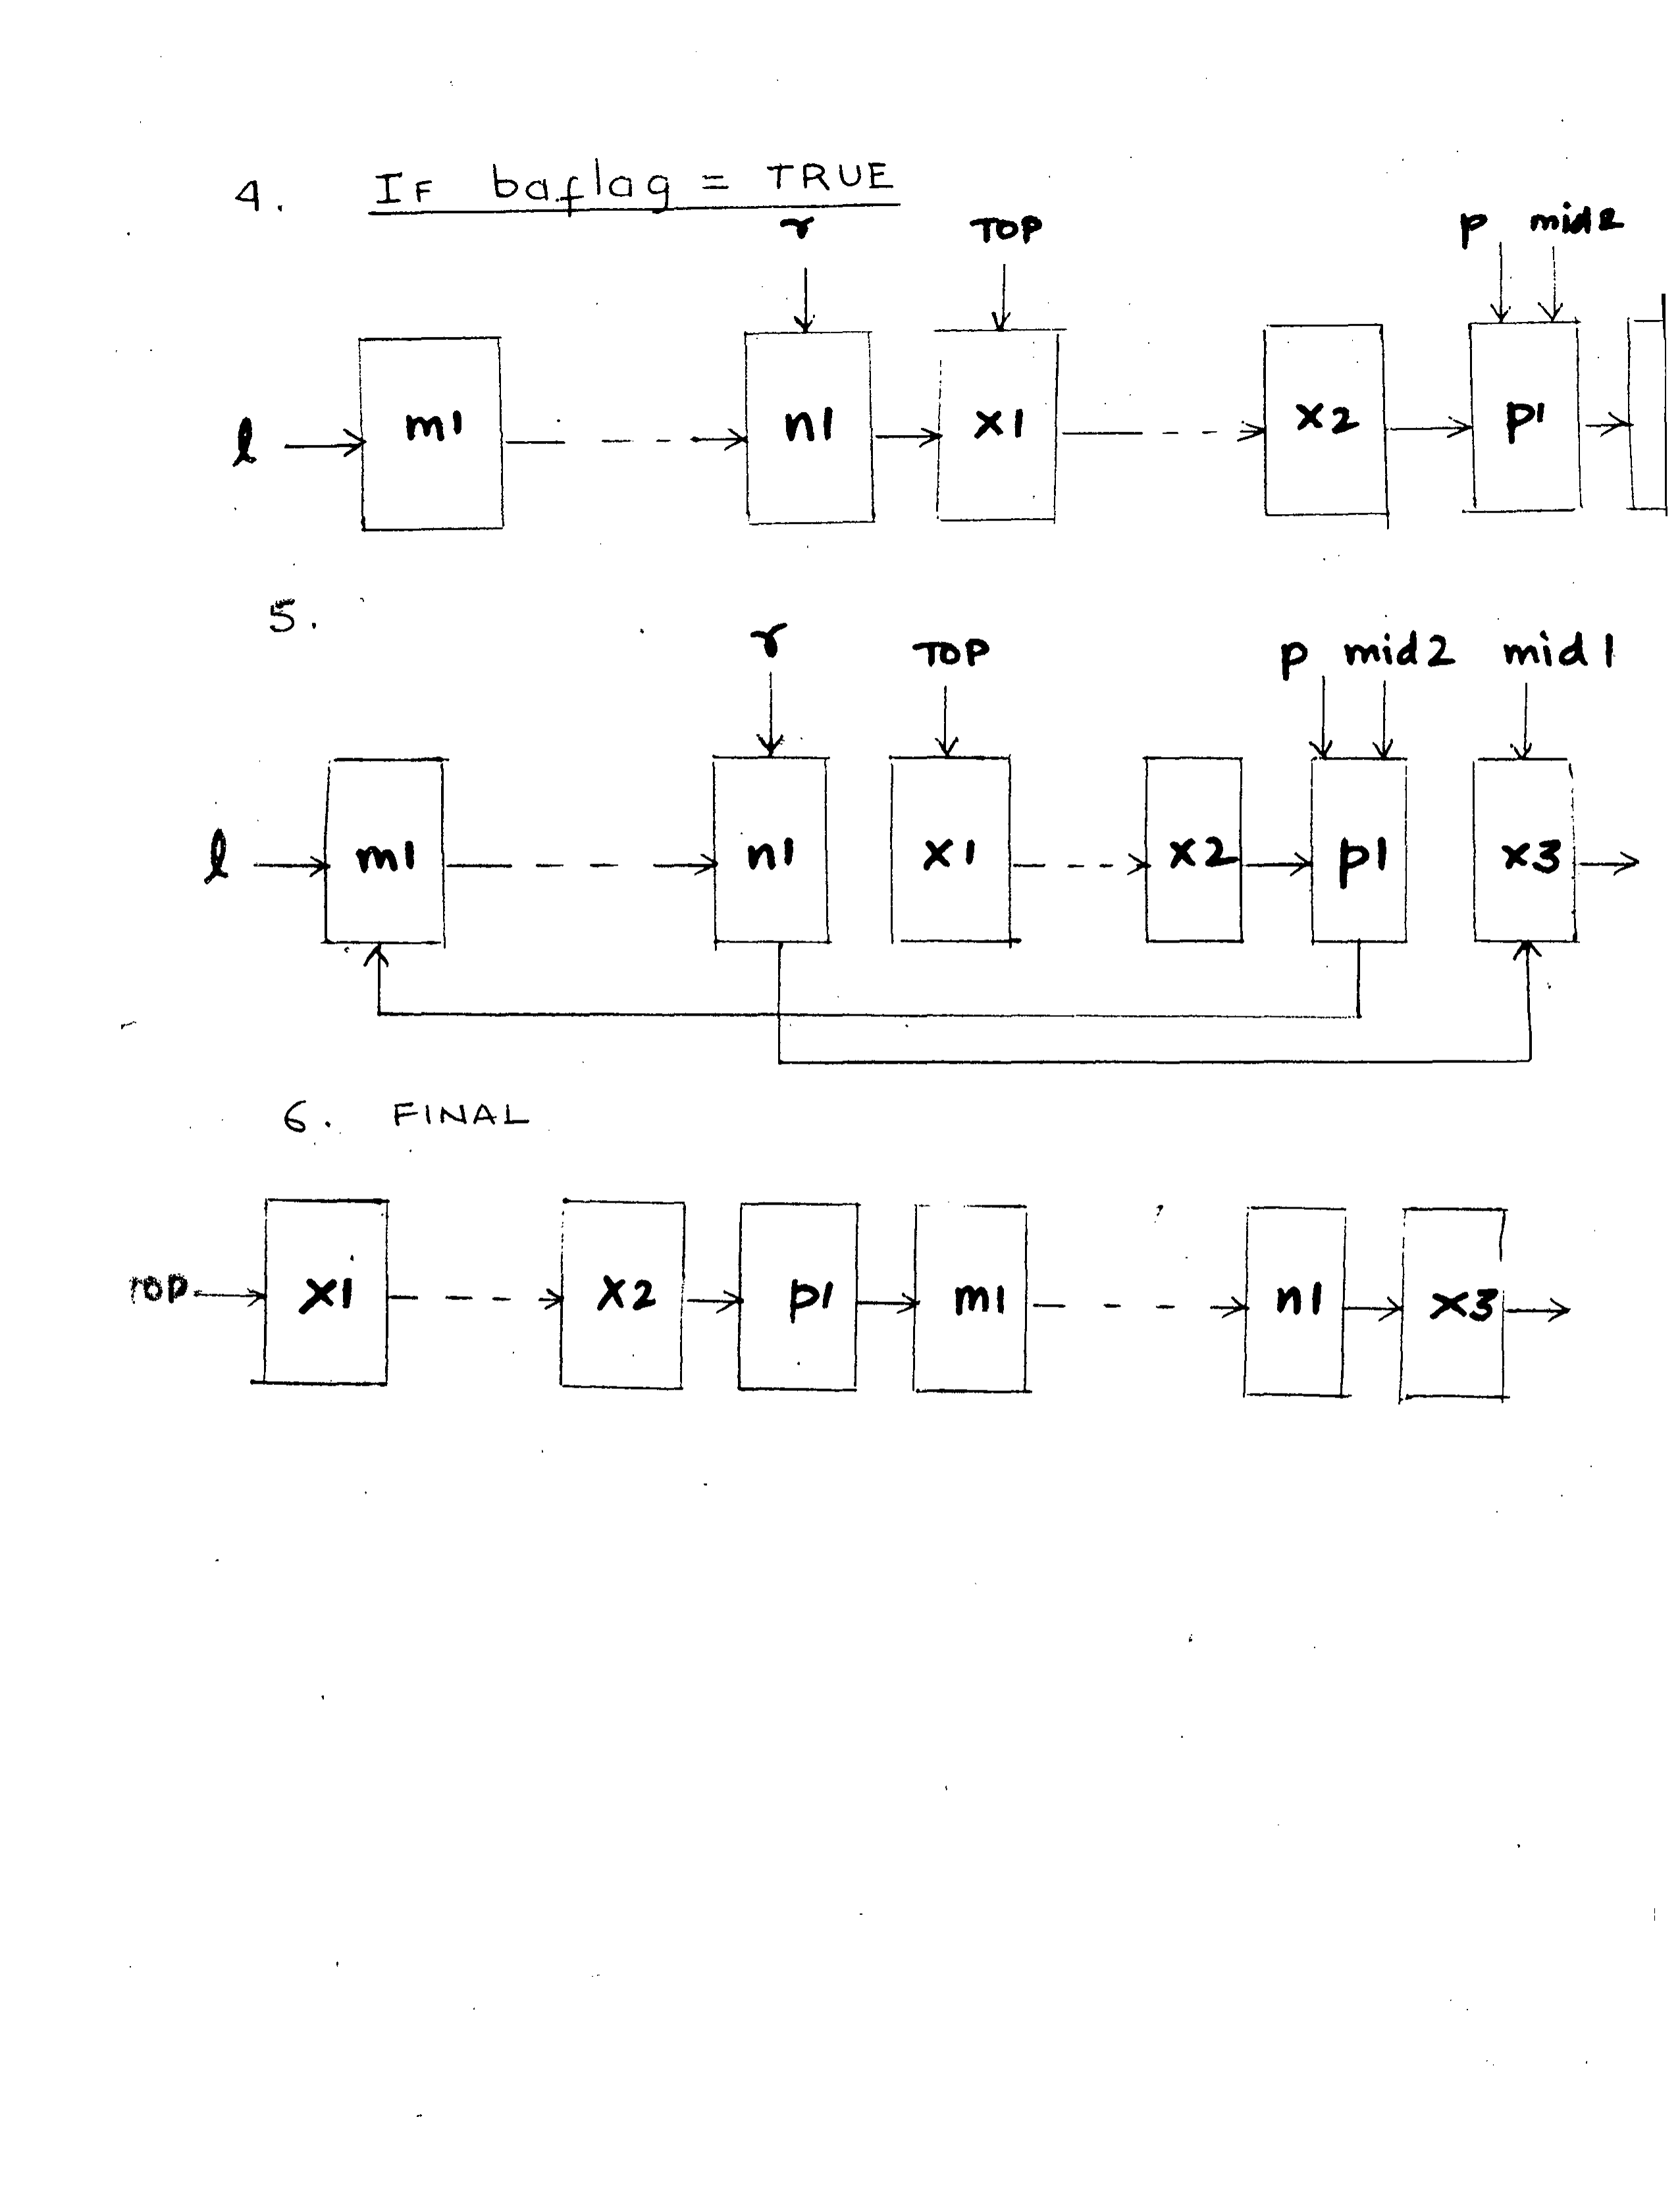 4. IF baflag = TRUE
r TOP p mid2
l m1 n1 x1 x2 p1
5.
r TOP p mid2 mid1
l m1 n1 x1 x2 p1 x3
6. FINAL
TOP x1 x2 p1 m1 n1 x3